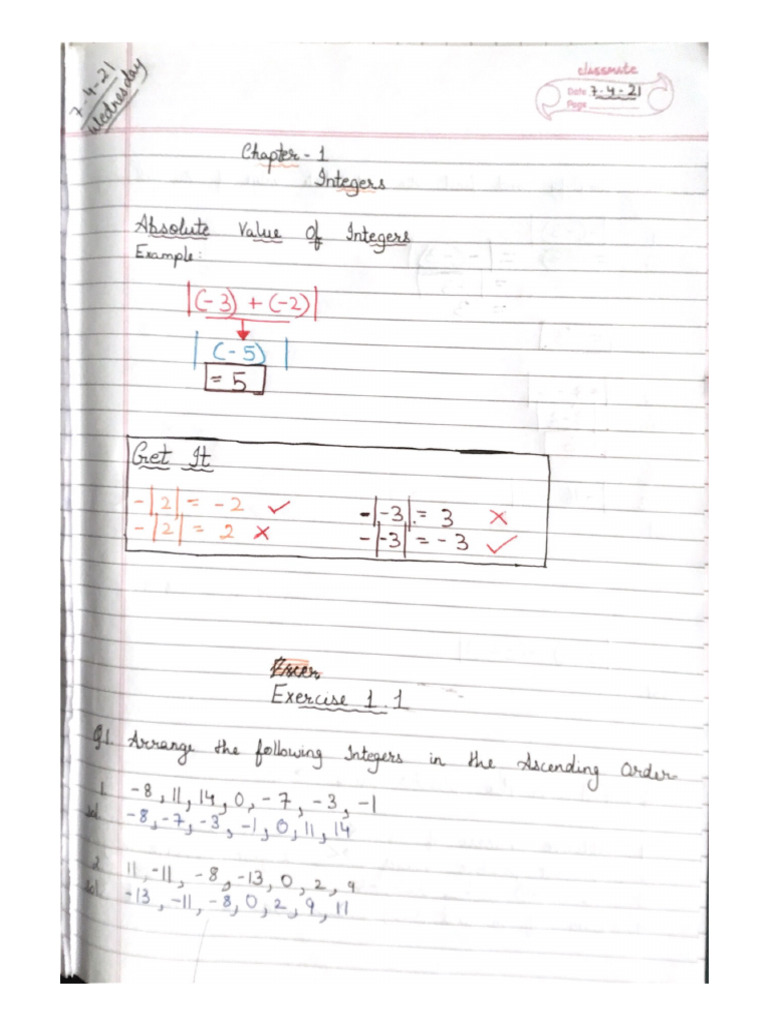 7-4-21
Wednesday
classmate
Date 7-4-21
Page
Chapter - 1
Integers
Absolute Value Of Integers
Example:
|(-3) + (-2)|
| (-5) |
= 5
Get It
-|2| = -2 ✓ -|-3| = 3 ×
-|2| = 2 × -|-3| = -3 ✓
Exercise 1.1
Q1. Arrange the following Integers in the Ascending Order
1. -8, 11, 14, 0, -7, -3, -1
sol. -8, -7, -3, -1, 0, 11, 14
2. 11, -11, -8, -13, 0, 2, 9
sol. -13, -11, -8, 0, 2, 9, 11